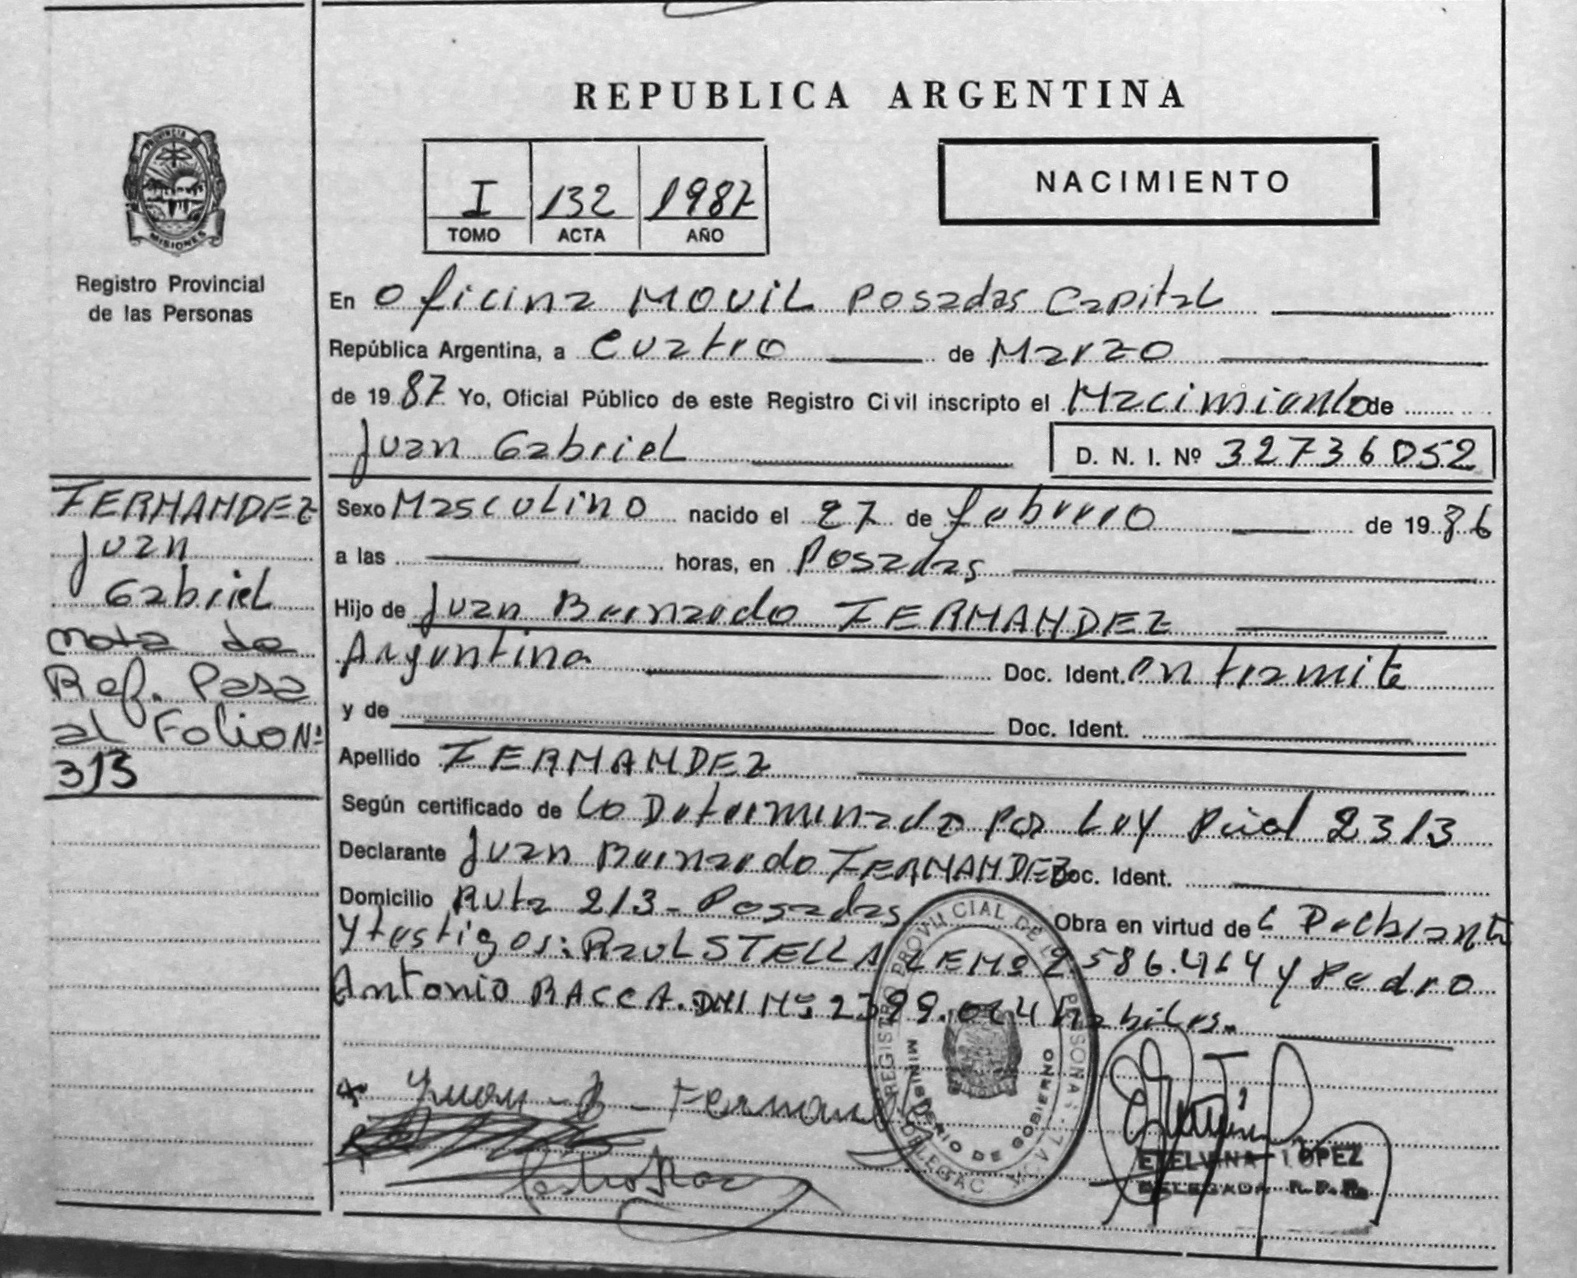 REPUBLICA ARGENTINA
PROVINCIA DE
MISIONES
Registro Provincial
de las Personas
I 132 1987
TOMO ACTA AÑO
NACIMIENTO
En Oficina MOVIL Posadas Capital
República Argentina, a Cuatro de Marzo
de 1987 Yo, Oficial Público de este Registro Civil inscripto el Nacimiento de
Juan Gabriel
D. N. I. Nº 32736052
FERNANDEZ
Juan
Gabriel
nota de
Ref. Pasa
al Folio Nº
313
Sexo Masculino nacido el 27 de febrero de 1986
a las horas, en Posadas
Hijo de Juan Bernardo FERNANDEZ
Argentina Doc. Ident. en tramite
y de Doc. Ident.
Apellido FERNANDEZ
Según certificado de Lo Determinado Por Ley Pcial 2313
Declarante Juan Bernardo FERNANDEZ Doc. Ident.
Domicilio Ruta 213 - Posadas Obra en virtud de L Declarante
Y testigos: Raul STELLA LE Nº 7.586.464 y Pedro
Antonio RACCA. DNI Nº 2399.044 habiles.
REGISTRO PROVINCIAL DE LAS PERSONAS
MINISTERIO DE GOBIERNO
Juan - B - Fernandez
ETELVINA LOPEZ
DELEGADA R.P.P.